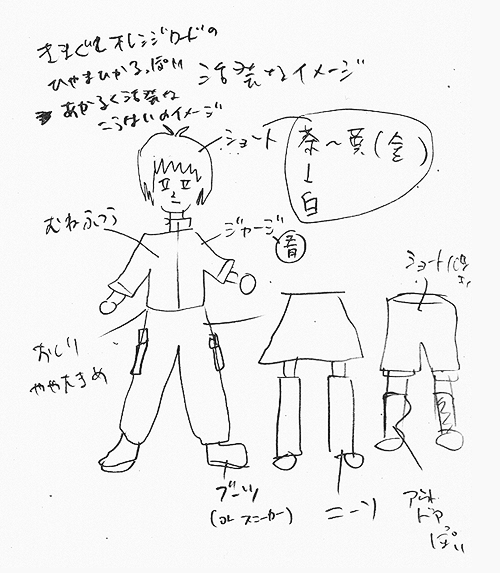 きまぐれオレンジロードの
ひやまひかるっぽい
あかるく活発な
こうはいのイメージ
活発なイメージ
ショート
茶〜黄(金)
↓
白
むねふつう
ジャージ
ショートパンツ
おしり
やや大きめ
ブーツ
(or スニーカー)
ニーソ
アウト
ドア
ぽい